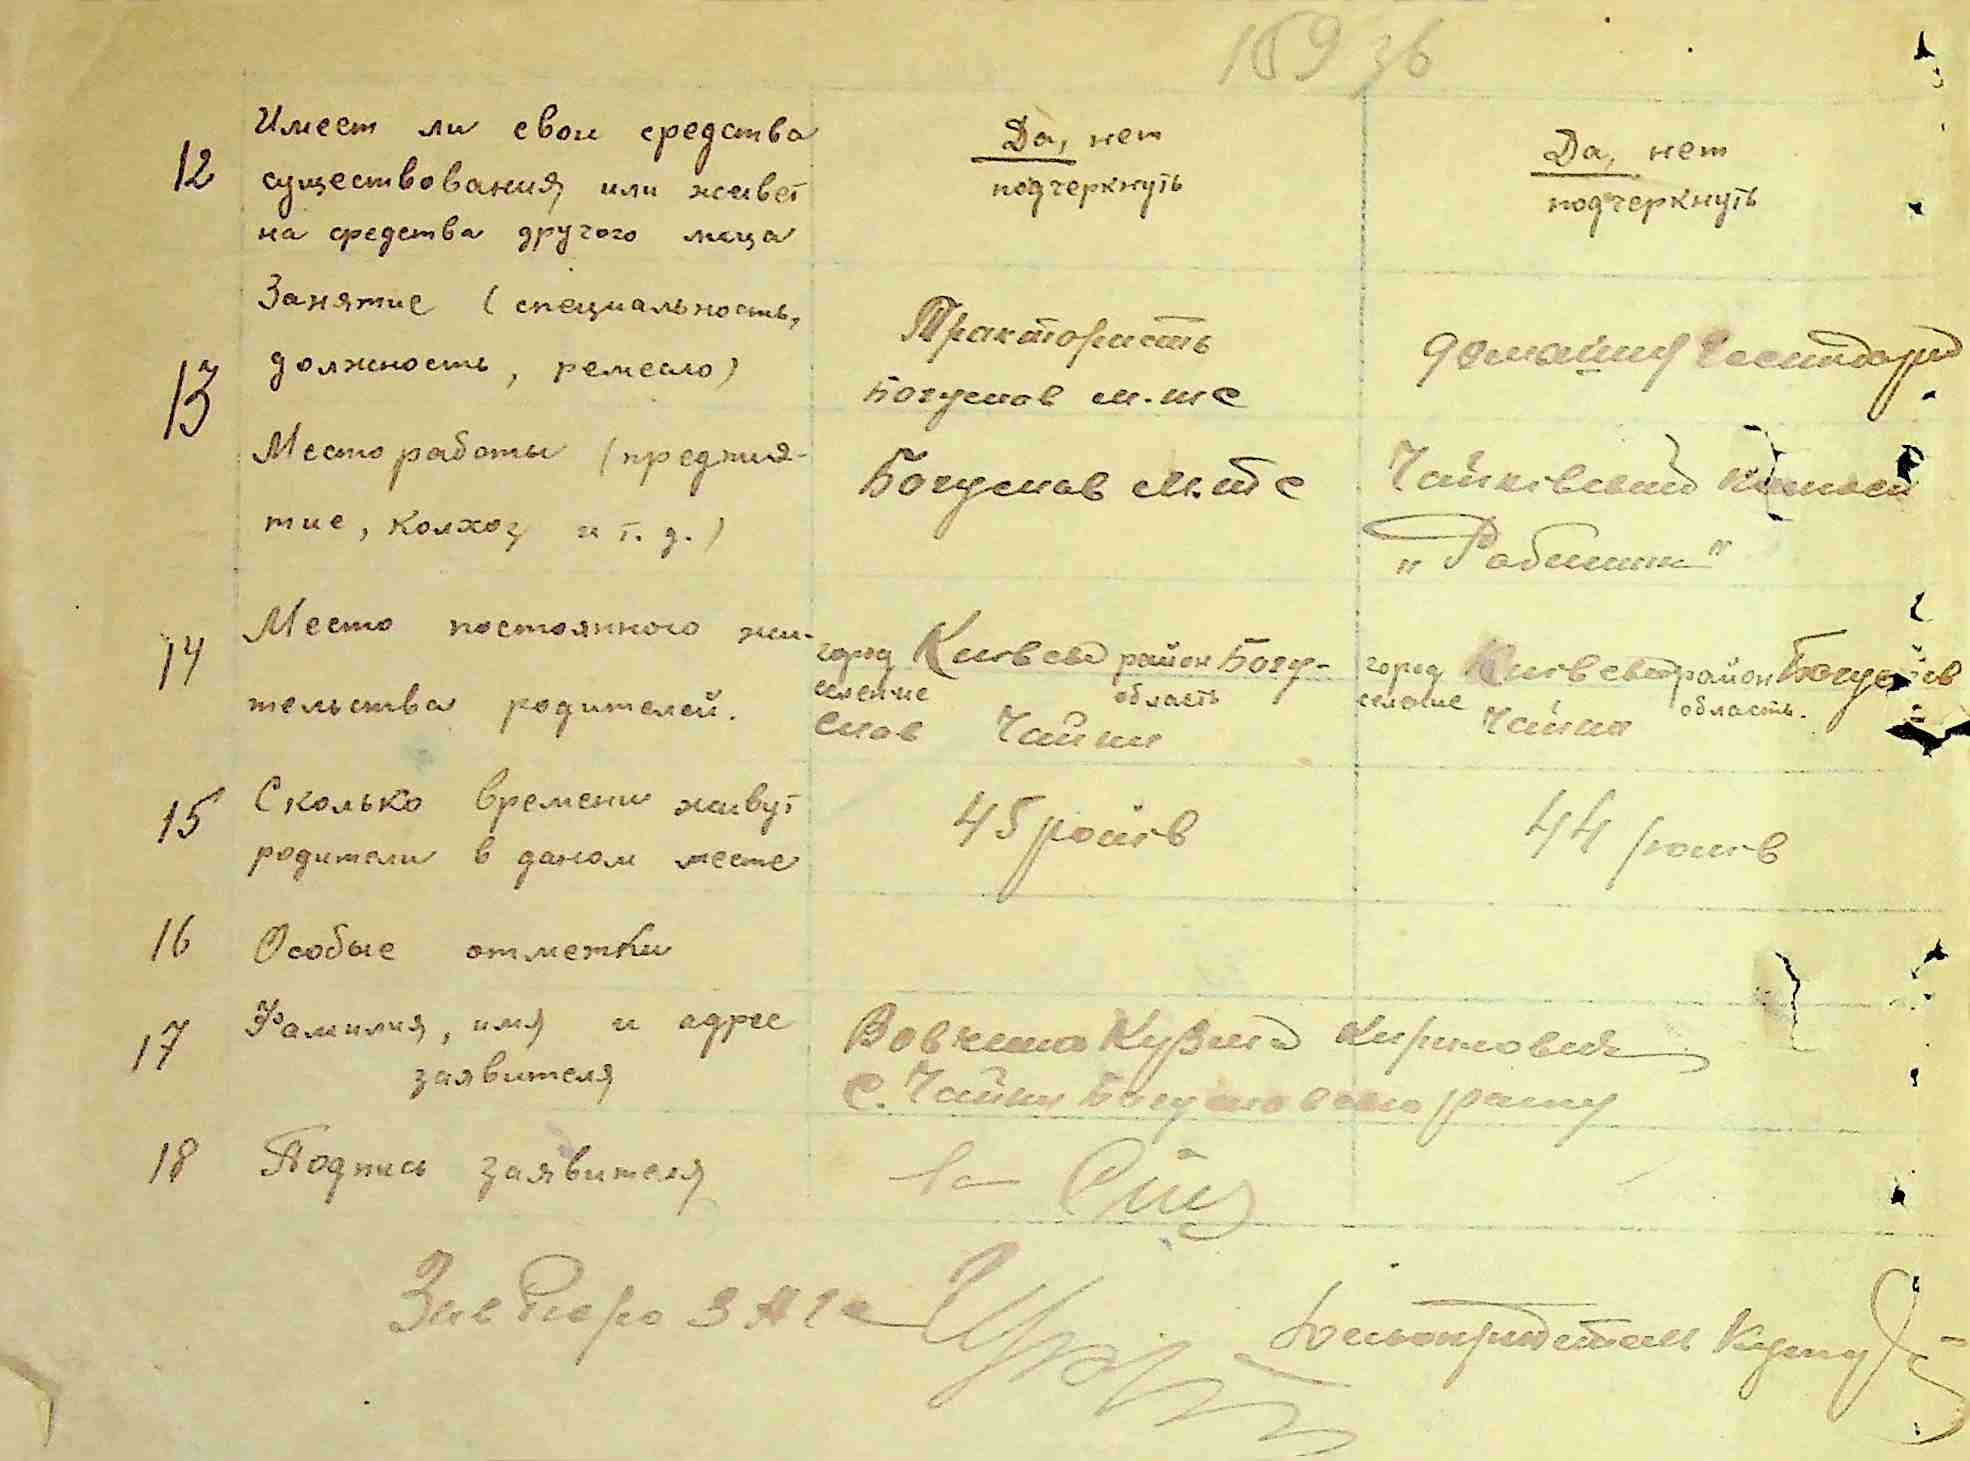 169 зв
12
Имеет ли свои средства
существования или живет
на средства другого лица
Да, нет
подчеркнуть
Да, нет
подчеркнуть
13
Занятие (специальность,
должность, ремесло)
Трактористъ
Богуслав м.т.с
домашня
Место работы (предприя-
тие, колхоз и т. д.)
Богуслав м.т с
Чайківський
"Робітник"
14
Место постоянного жи-
тельства родителей.
город Київська район Богу-
селение область
слав Чайки
город Київська район Богуслав
селение область.
Чайки
15
Сколько времени живут
родители в даном месте
45 років
44 років
16
Особые отметки
17
Фамилия, имя и адрес
заявителя
Кузьма Кирилович
с. Чайки Богуславського району
18
Подпись заявителя
Зав Бюро ЗАГС